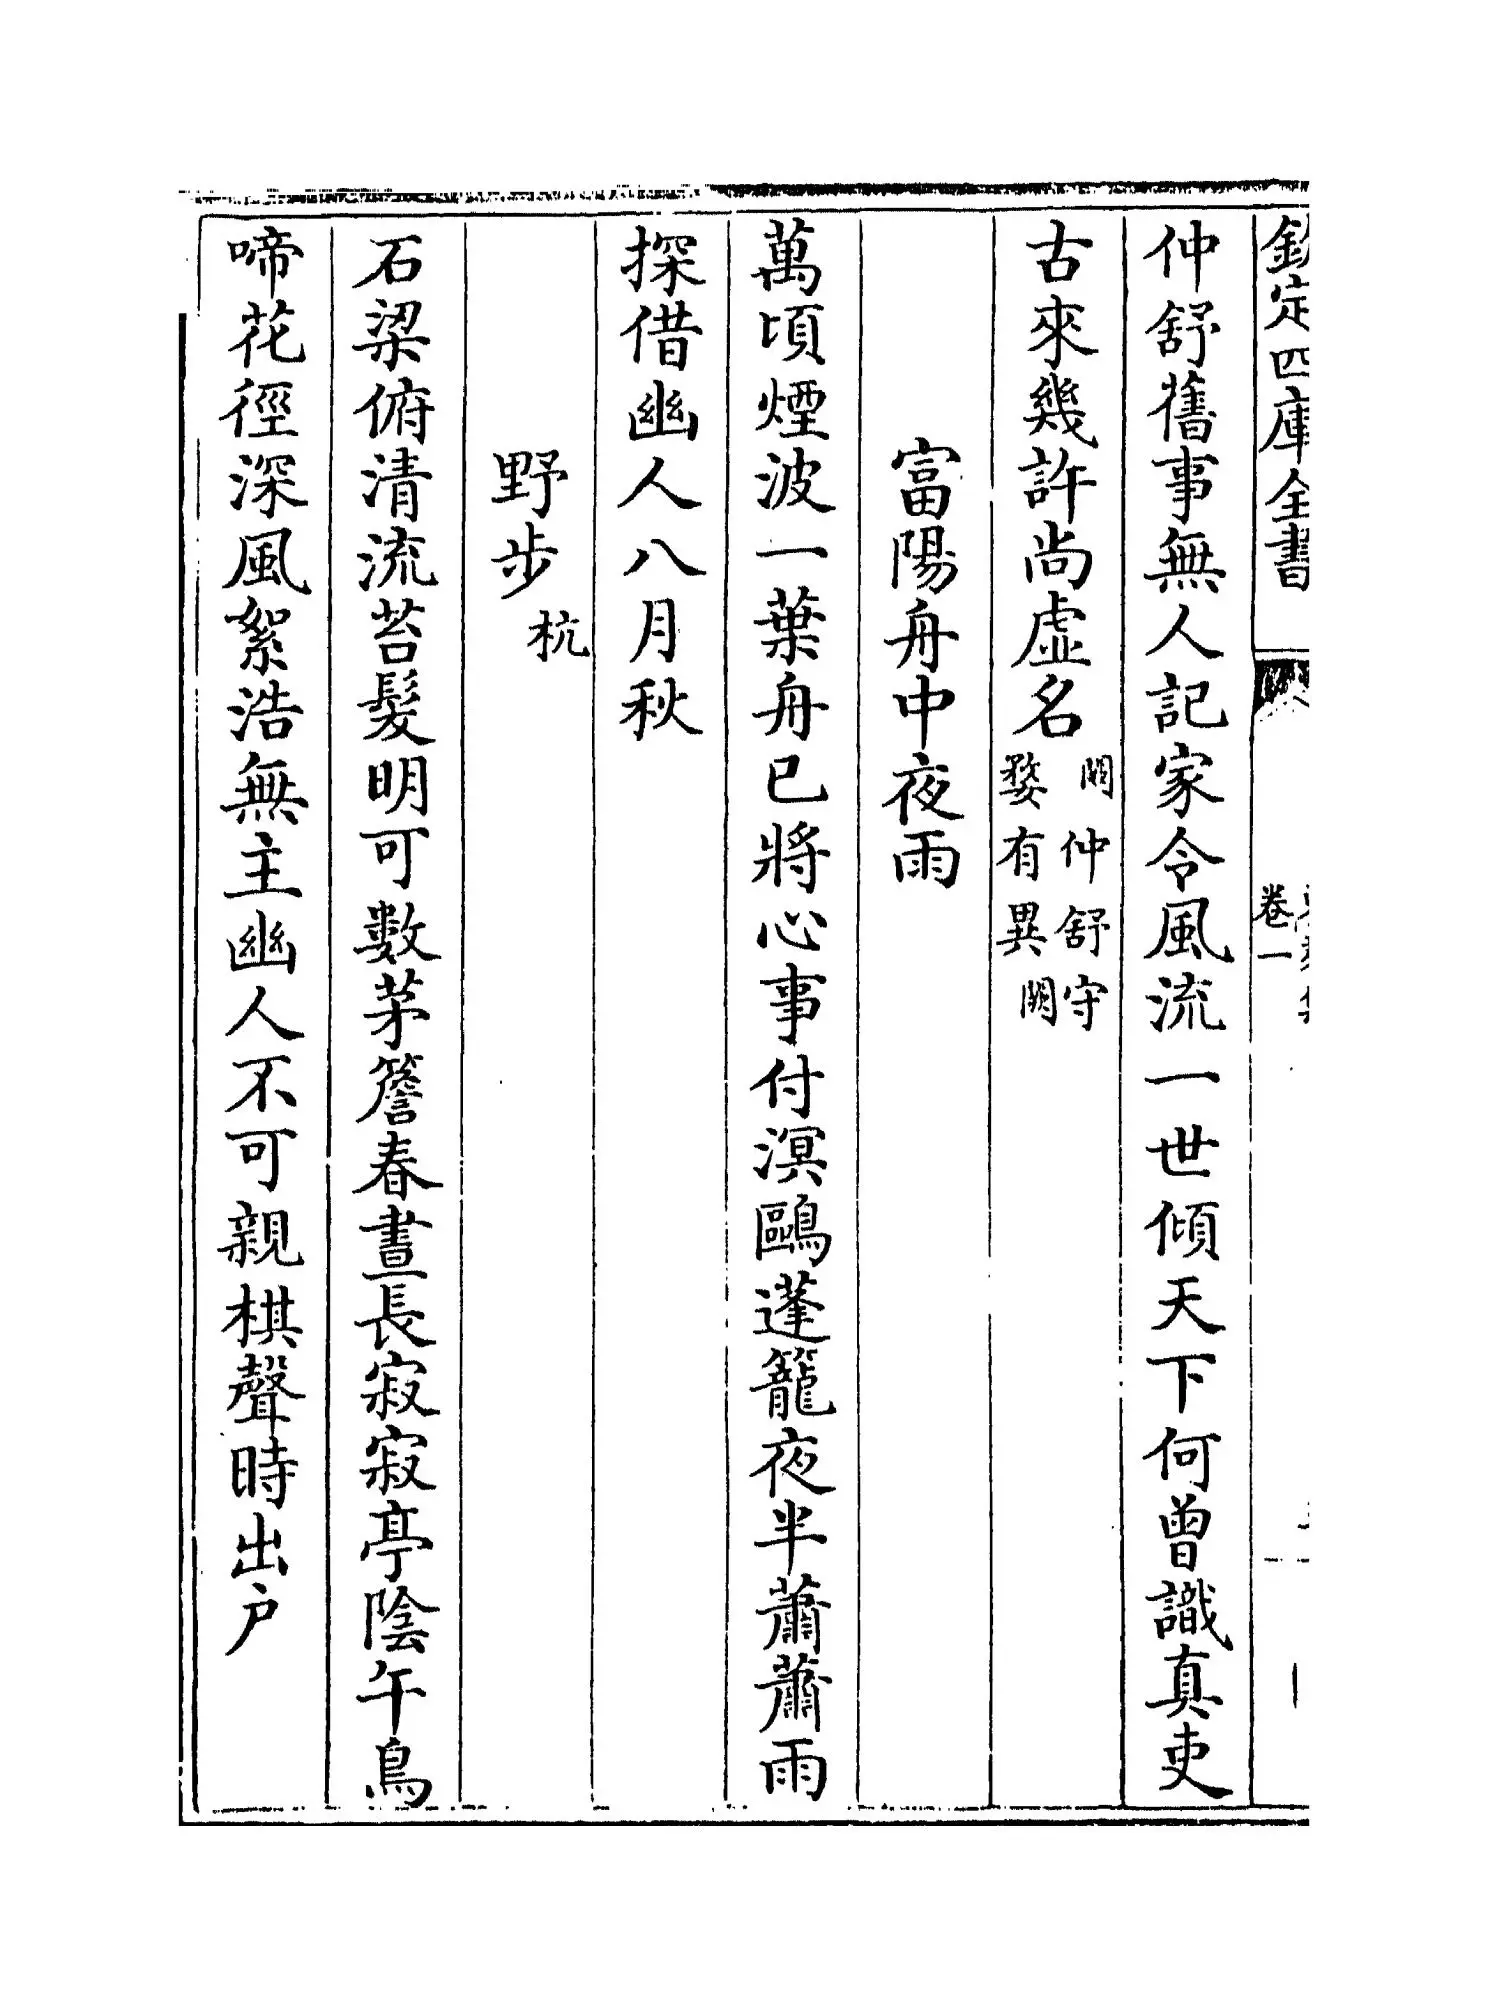 欽定四庫全書
卷一
仲舒舊事無人記家令風流一世傾天下何曾識真吏
古來幾許尚虛名闕仲舒守婺有異闕
富陽舟中夜雨
萬頃煙波一葉舟已將心事付溟鷗蓬籠夜半蕭蕭雨
探借幽人八月秋
野步杭
石梁俯清流苔髮明可數茅簷春晝長寂寂亭陰午鳥
啼花徑深風絮浩無主幽人不可親棋聲時出户